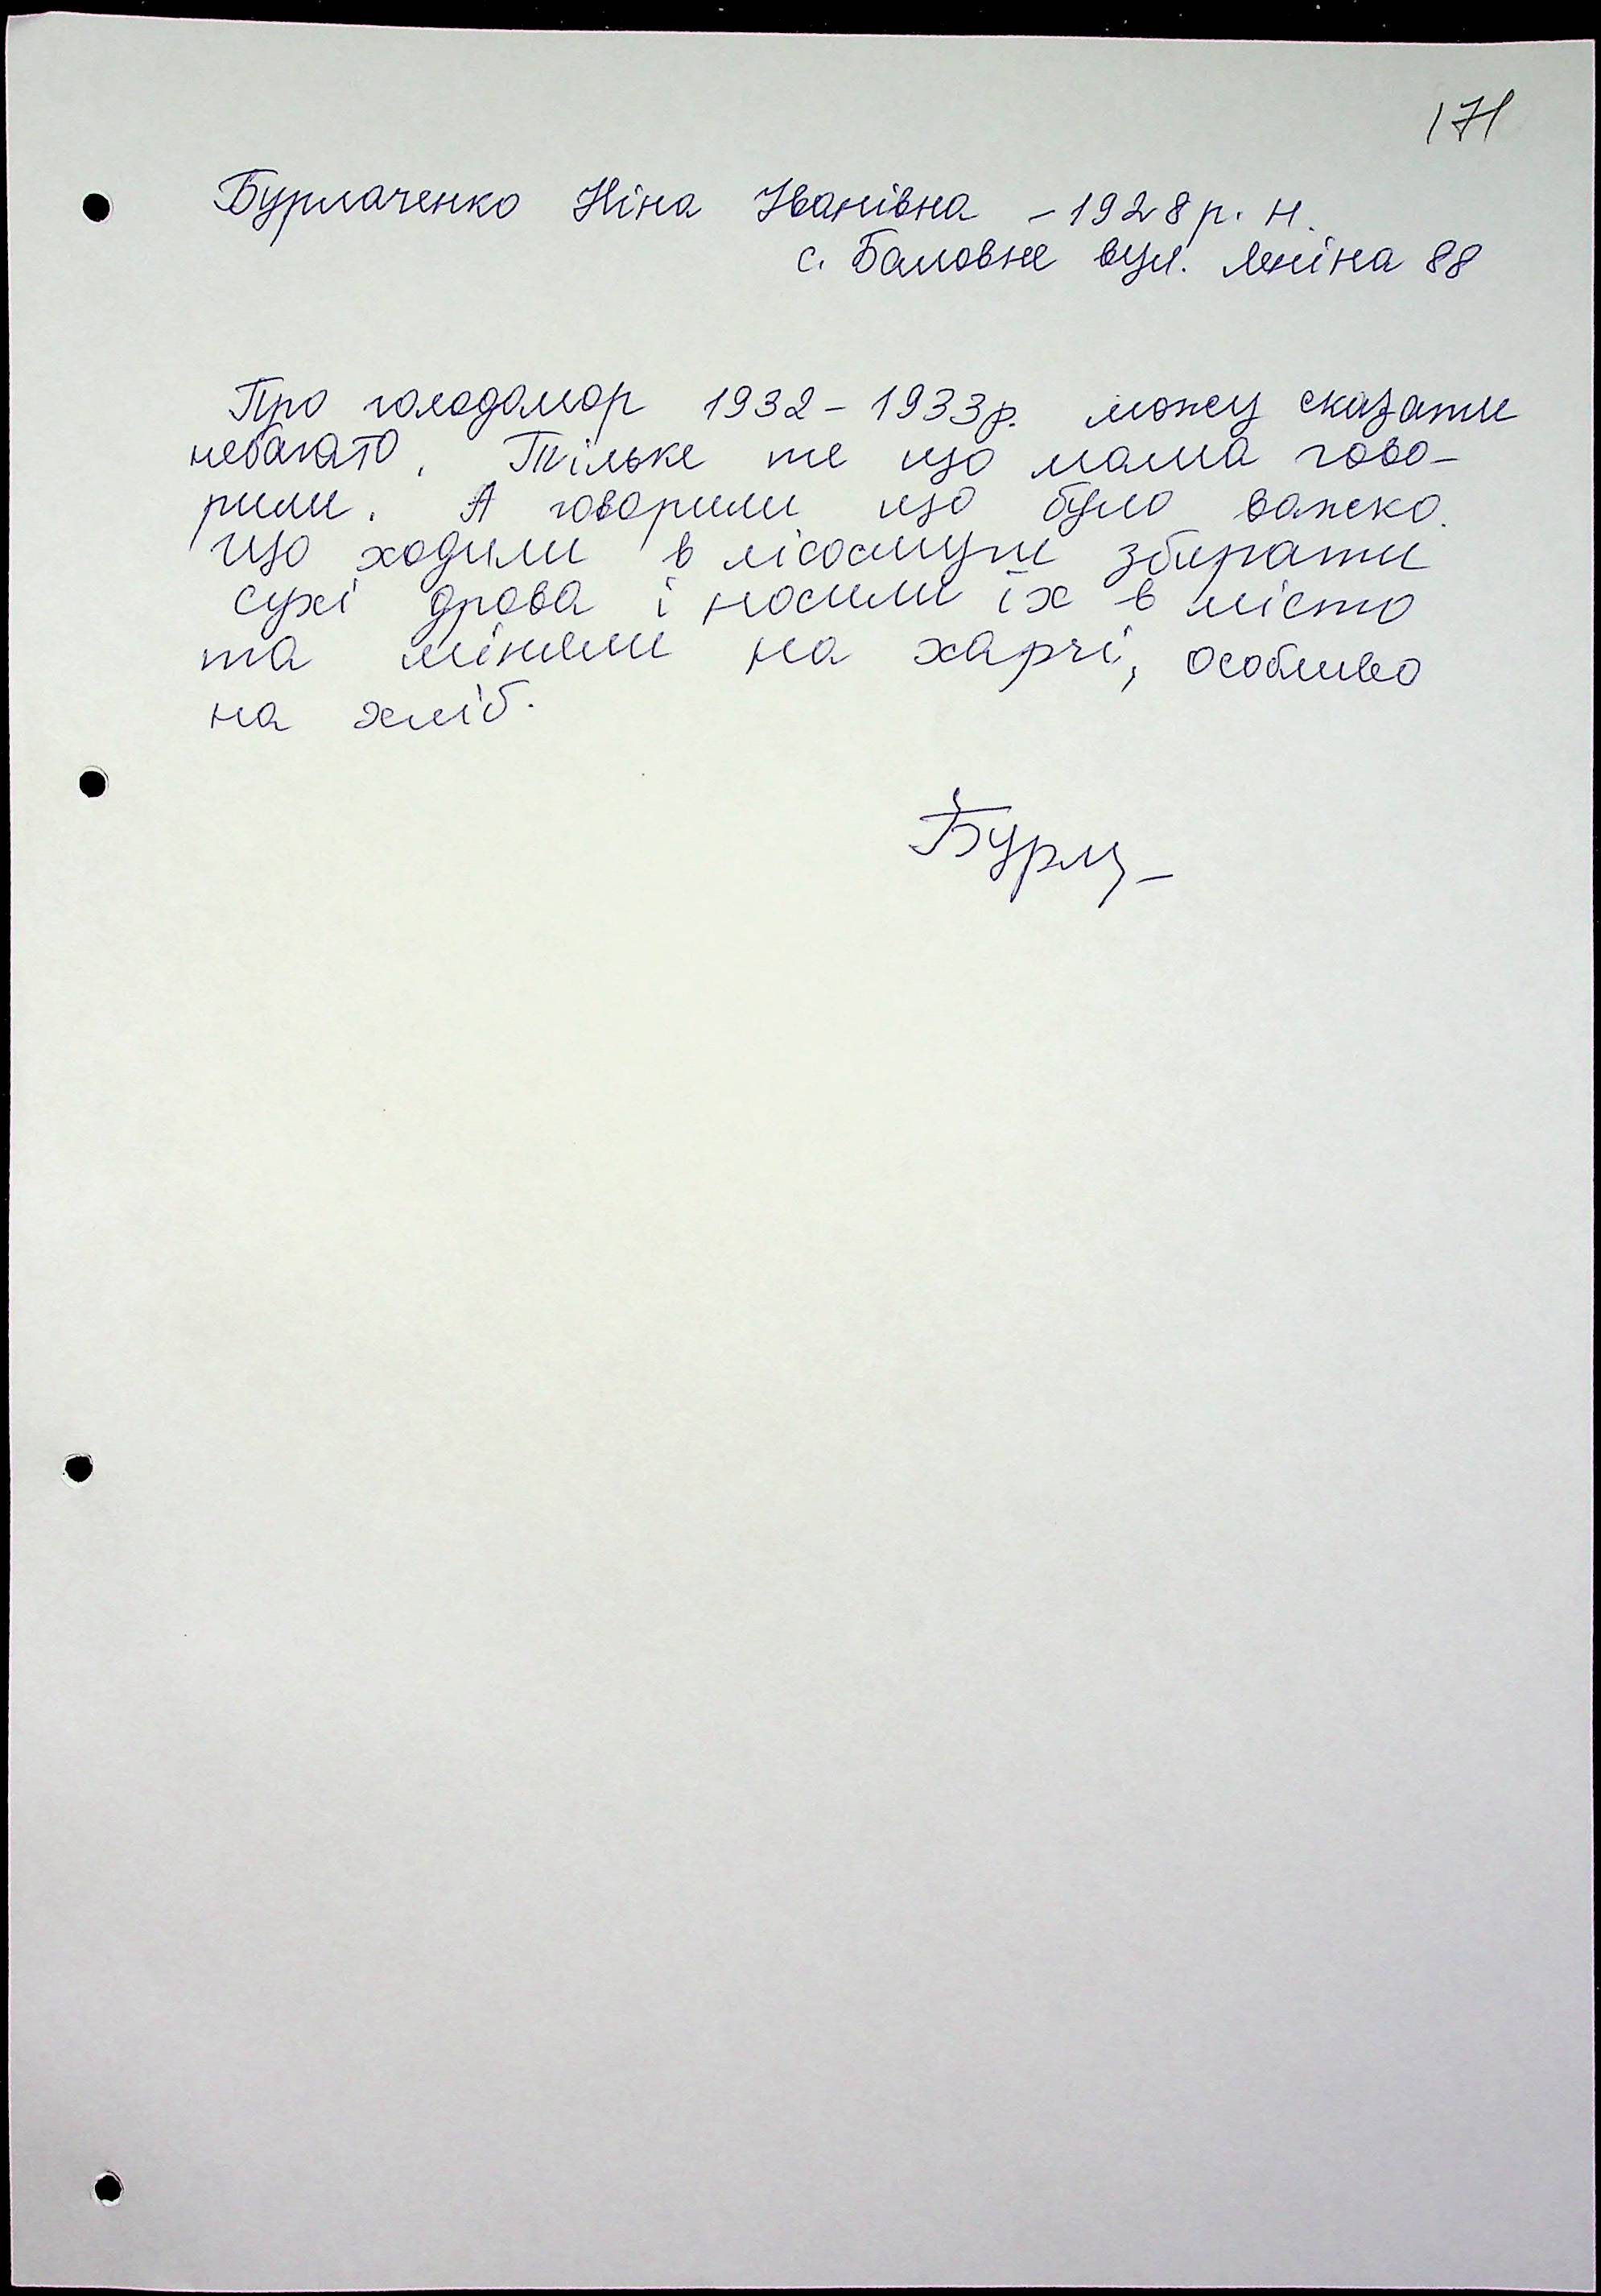 171
Бурлаченко Ніна Іванівна – 1928 р. н.
с. Баловне вул. Леніна 88
Про голодомор 1932 – 1933р. можу сказати
небагато. Тільке те що мама гово-
рили. А говорили що було важко.
що ходили в лісосмуги збирати
сухі дрова і носили їх в місто
та міняли на харчі, особливо
на хліб.